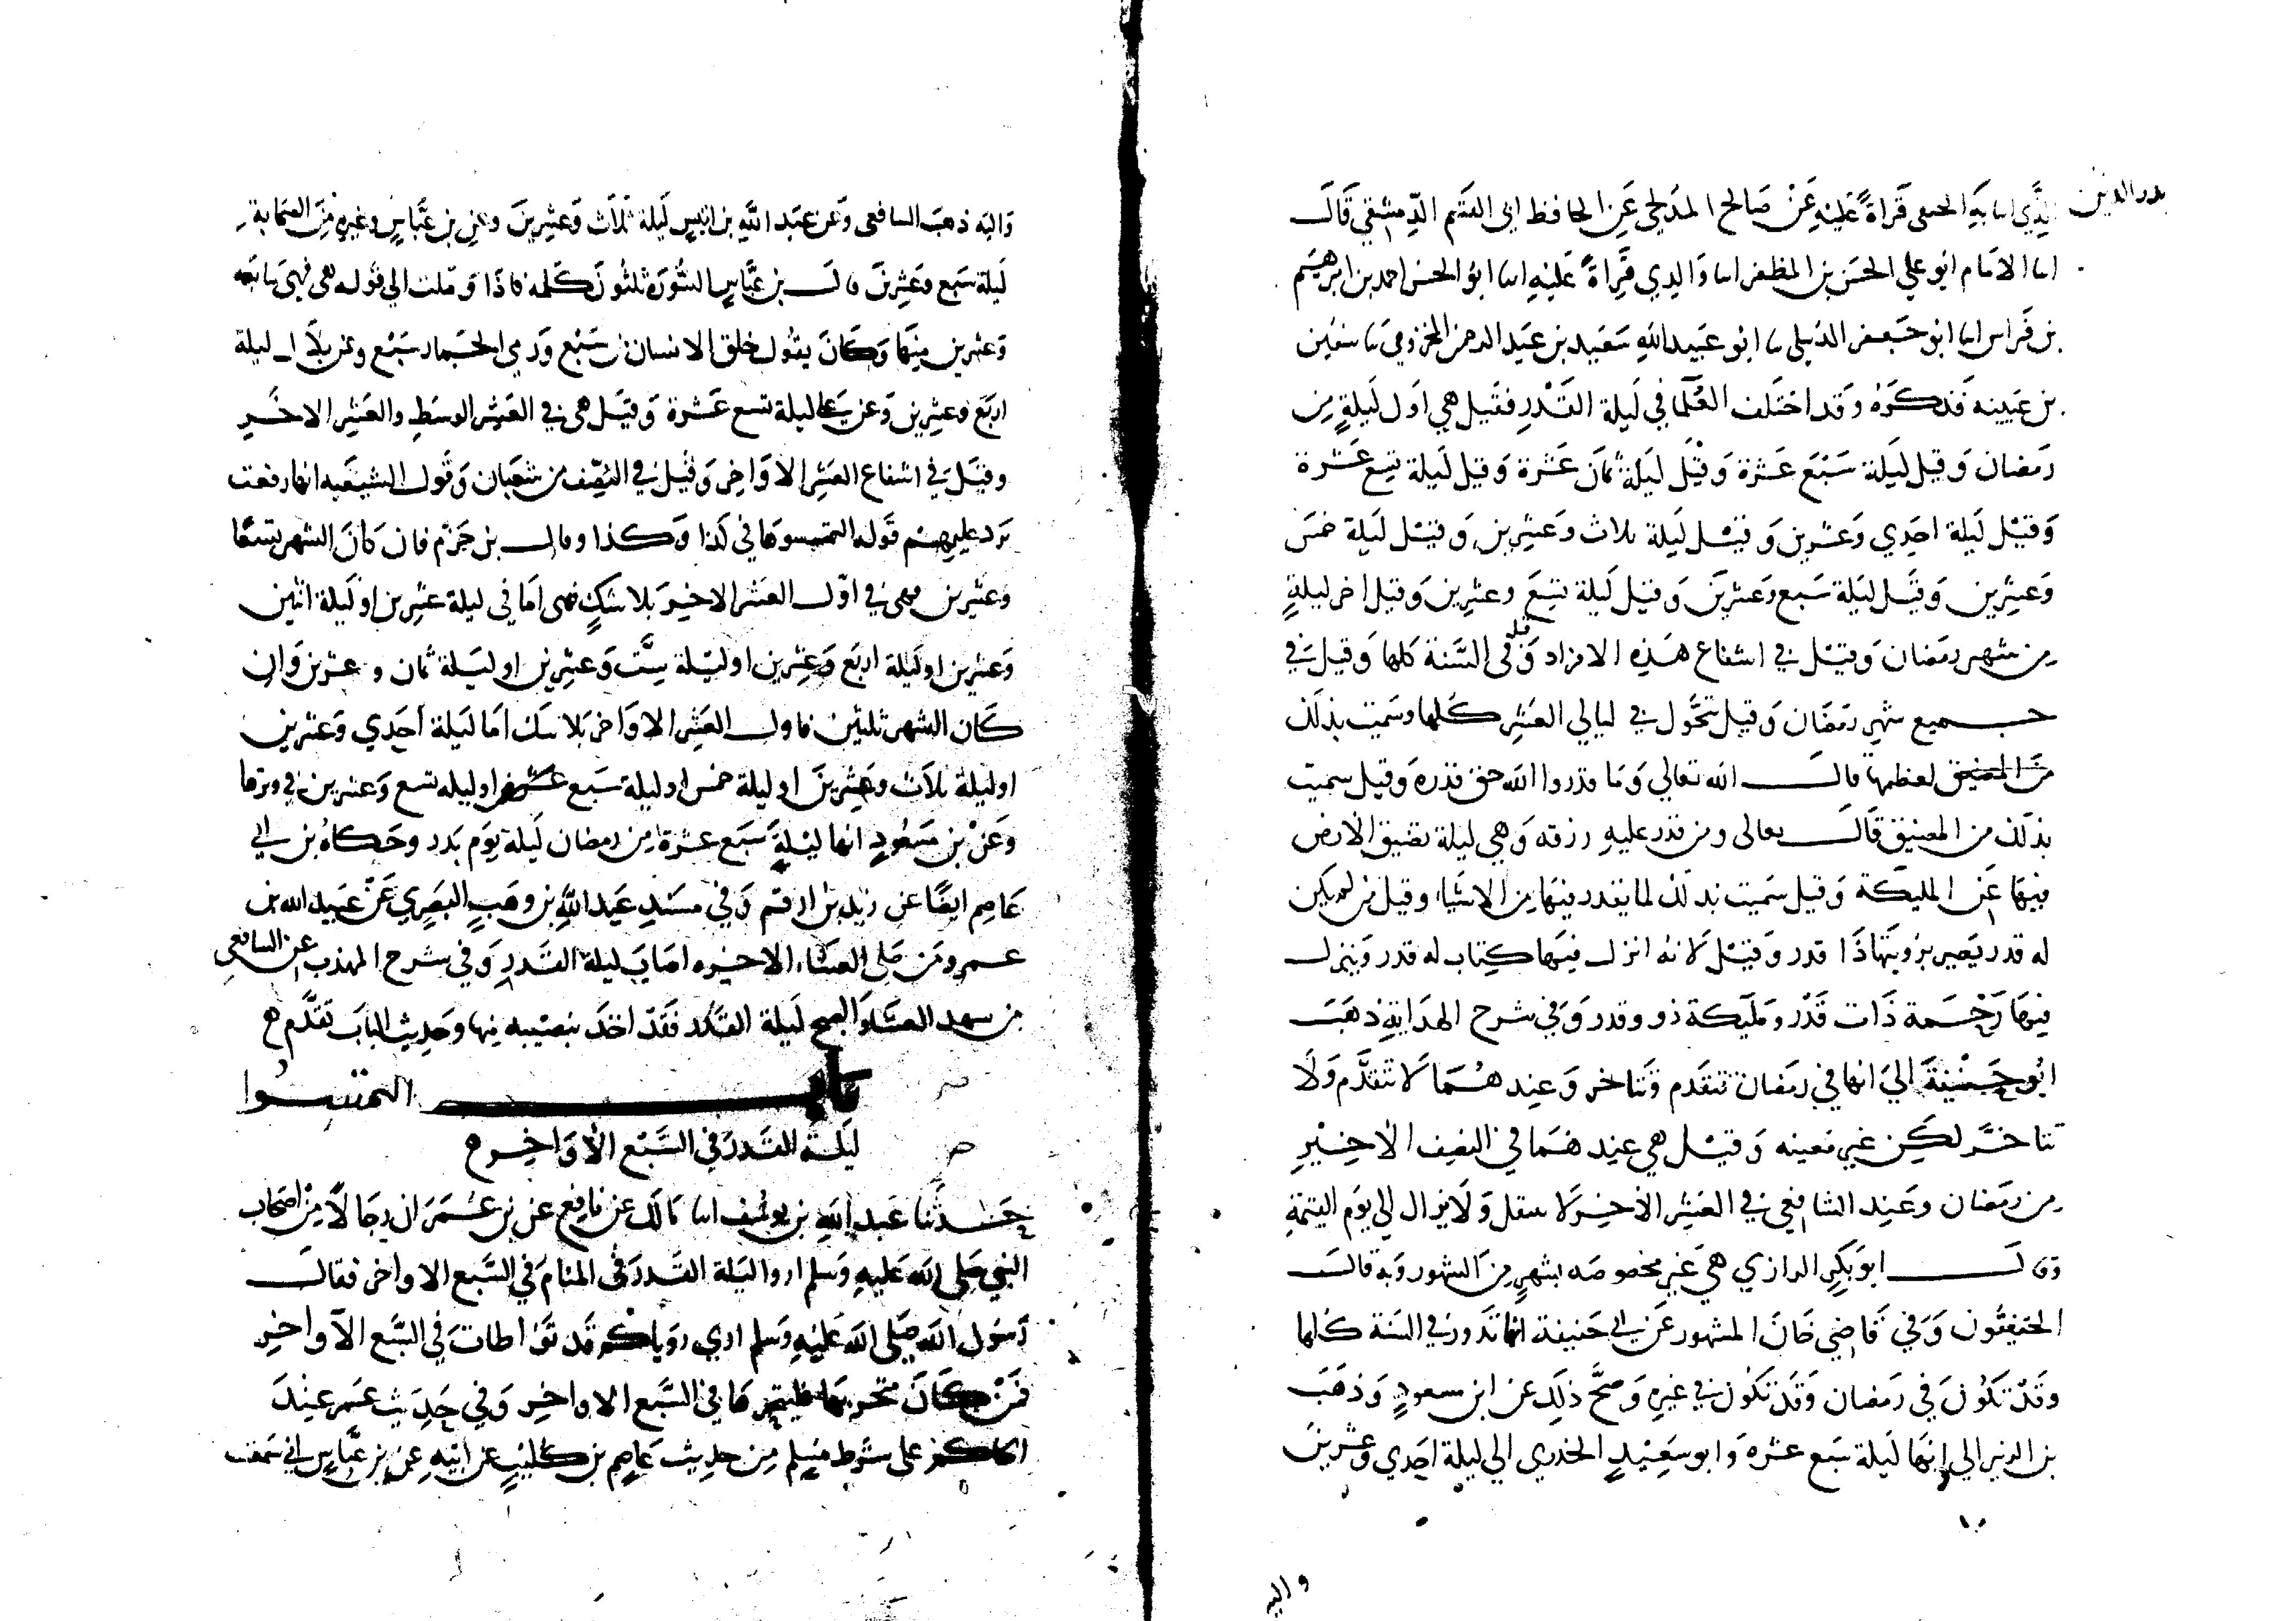 بدر الدين
الذي انا به الحنفي قراءة عليه عن صالح المدلجي عن الحافظ ابي القسم الدمشقي قال
انا الامام ابو علي الحسن بن المظفر انا والدي قراة عليه انا ابو الحسن احمد بن ابرهيم
بن فراس انا ابو جعفر الديبلي ثنا ابو عبيد الله سعيد بن عبد الرحمن المخزومي ثنا سفين
بن عيينه فذكره وقد اختلف العلما في ليلة القدر فقيل هي اول ليلة من
رمضان وقيل ليلة سبع عشرة وقيل ليلة ثمان عشرة وقيل ليلة تسع عشرة
وقيل ليلة احدي وعشرين وقيل ليلة ثلاث وعشرين وقيل ليلة خمس
وعشرين وقيل ليلة سبع وعشرين وقيل ليلة تسع وعشرين وقيل اخر ليلة
من شهر رمضان وقيل في اشفاع هذه الافراد وقيل في السنة كلها وقيل في
جميع شهر رمضان وقيل تحول في ليالي العشر كلها وسميت بذلك
لعظمها قال الله تعالي وما قدروا الله حق قدره وقيل سميت
بذلك من التضييق قال تعالى ومن قدر عليه رزقه وهي ليلة تضيق الارض
فيها عن المليكة وقيل سميت بذلك لما يقدر فيها من الاشيا وقيل من لم يكن
له قدر يصير برؤيتها ذا قدر وقيل لانه انزل فيها كتاب له قدر وينزل
فيها رحمة ذات قدر ومليكة ذوو قدر وفي شرح الهداية ذهب
ابو حنيفة الي انها في رمضان تتقدم وتتاخر وعندهما لا تتقدم ولا
تتاخر لكن غير معينه وقيل هي عندهما في النصف الاخير
من رمضان وعند الشافعي في العشر الاخير لا تنتقل ولا يزال الي يوم القيمة
وقال ابو بكر الرازي هي غير مخصوصه بشهر من الشهور وبه قال
الحنفيون وفي قاضي خان المشهور عن ابي حنيفة انها تدور في السنة كلها
وقد تكون في رمضان وقد تكون في غيره وصح ذلك عن ابن مسعود وذهب
بن الزبير الي انها ليلة سبع عشره وابو سعيد الخدري الي ليلة احدي وعشرين
واليه
واليه ذهب الشافعي وعن عبد الله بن انيس ليلة ثلاث وعشرين وعن بن عباس وغيره من الصحابة
ليلة سبع وعشرين قال بن عباس السورة ثلثون كلمه فاذا وصلت الي قوله هي فهي سابعه
وعشرين منها وكان يقول خلق الانسان من سبع ورمي الجمار سبع وعن بلال ليلة
اربع وعشرين وعن علي ليلة تسع عشرة وقيل هي في العشر الوسط والعشر الاخير
وقيل في اشفاع العشر الاواخر وقيل في النصف من شعبان وقول الشيعه انها رفعت
يرد عليهم قوله التمسوها في كذا وكذا وقال بن حزم فان كان الشهر تسعا
وعشرين فهي في اول العشر الاخير بلا شك فهي اما في ليلة عشرين او ليلة اثنين
وعشرين او ليلة اربع وعشرين او ليلة ست وعشرين او ليلة ثمان وعشرين وان
كان الشهر ثلثين فاول العشر الاواخر بلا شك اما ليلة احدي وعشرين
او ليلة ثلاث وعشرين او ليلة خمس او ليلة سبع او ليله تسع وعشرين في وترها
وعن بن مسعود انها ليلة سبع عشرة من رمضان ليلة يوم بدر وحكاه بن ابي
عاصم ايضا عن زيد بن ارقم وفي مسند عبد الله بن وهب البصري عن عبيد الله بن
عمر ومن صلى العشاء الاخيره اصاب ليلة القدر وفي شرح المهذب عن الشافعي
من شهد العشاء والصبح ليلة القدر فقد اخذ بنصيبه منها وحديث الباب تقدم
باب التمسوا
ليلة القدر في السبع الاواخر
حدثنا عبد الله بن يوسف انا مالك عن نافع عن بن عمر ان رجالا من اصحاب
النبي صلى الله عليه وسلم اروا ليلة القدر في المنام في السبع الاواخر فقال
رسول الله صلى الله عليه وسلم اري روياكم قد تواطات في السبع الاواخر
فمن كان متحريها فليتحرها في السبع الاواخر وفي حديث عمر عند
الحاكم على شرط مسلم من حديث عاصم بن كليب عن ابيه عن بن عباس اني سمعت